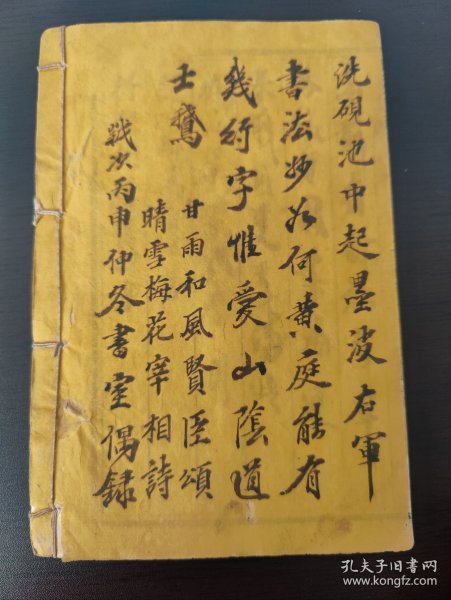 洗硯池中起墨波右軍
書法妙如何黄庭能有
幾行字惟愛山陰道
士鵞
甘雨和風賢臣頌
晴雪梅花宰相詩
歲次丙申仲冬書室偶録
孔夫子旧书网
www.kongfz.com